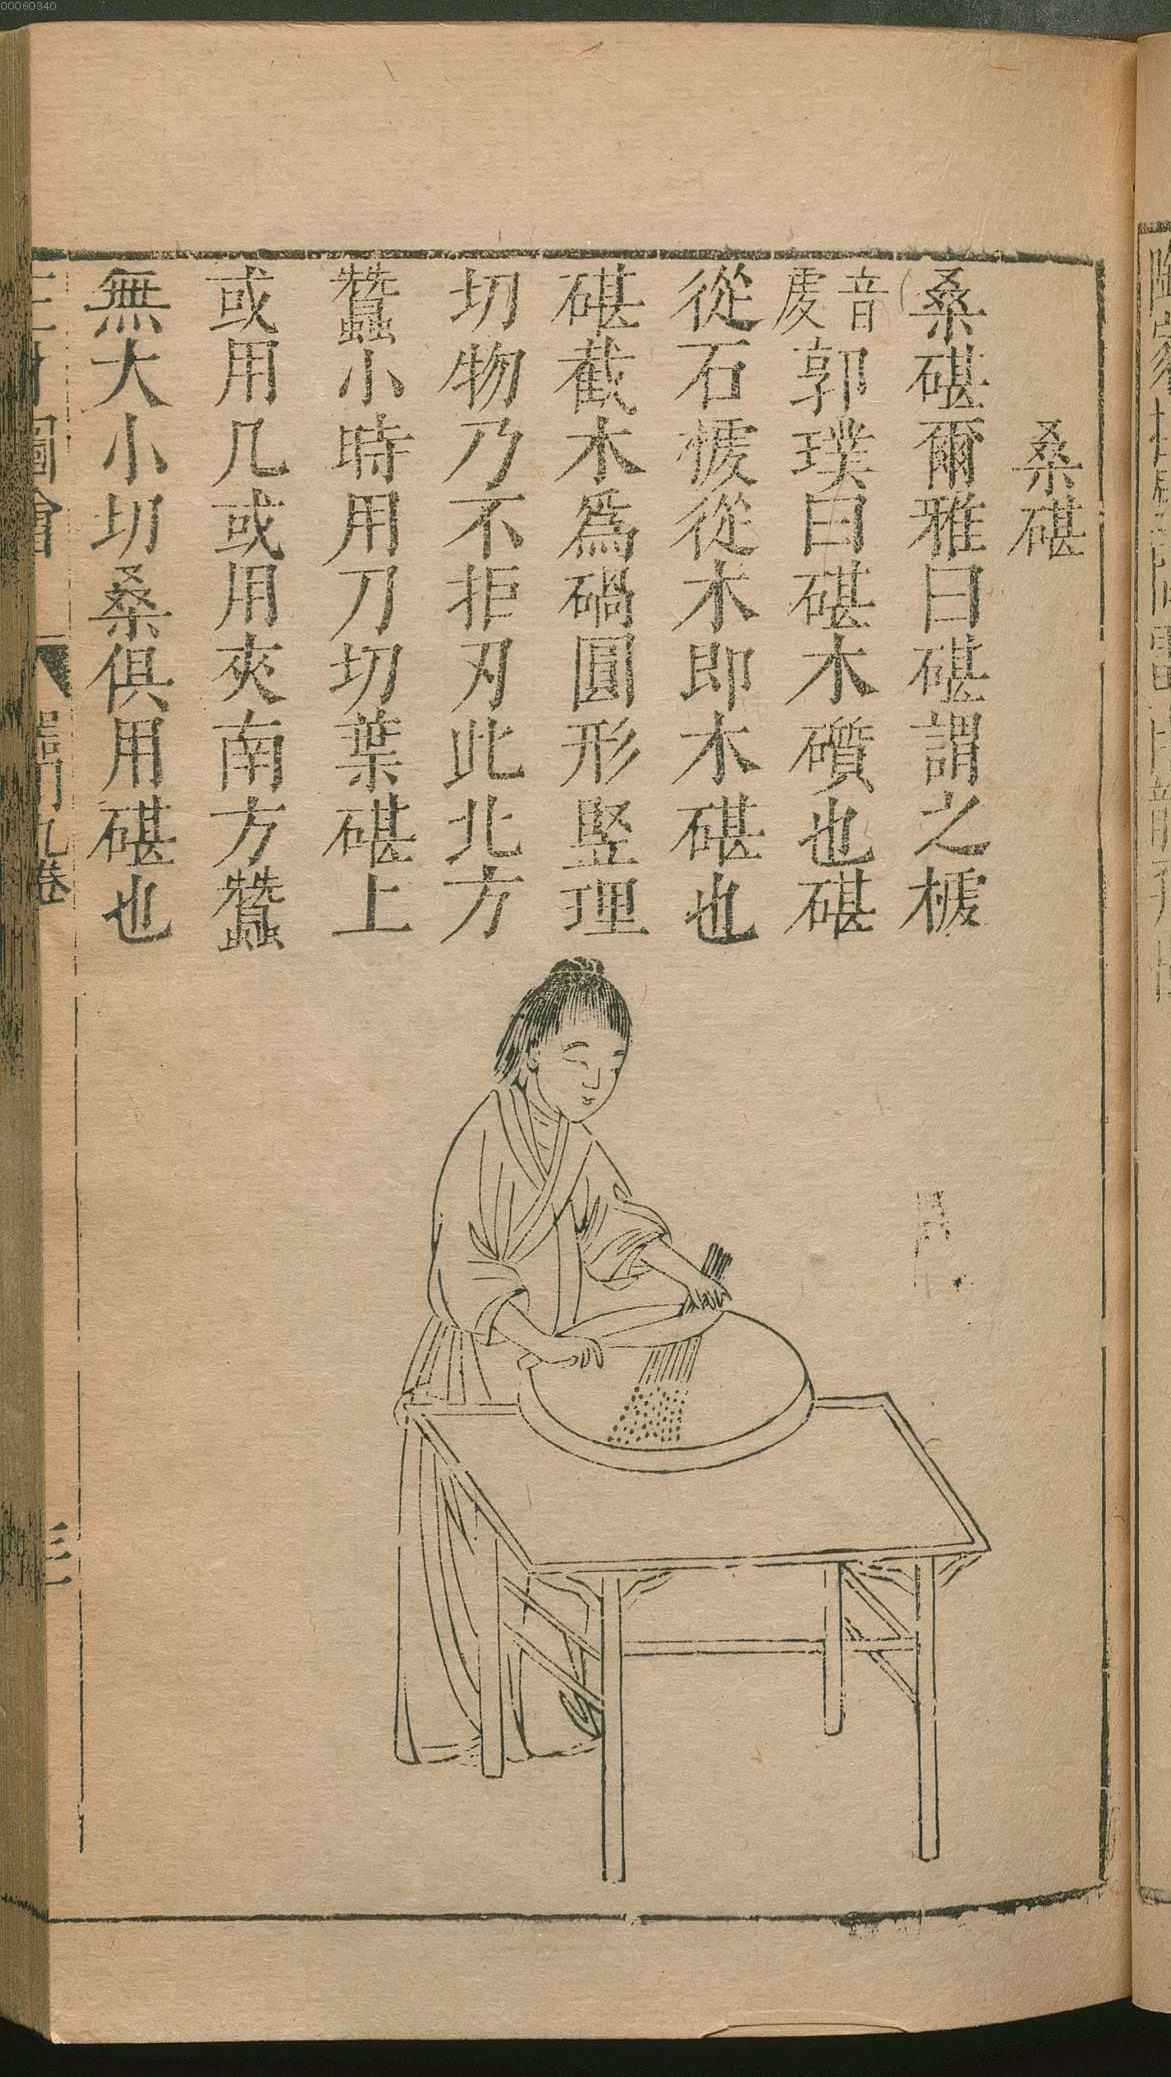 桑碪
桑碪爾雅曰碪謂之榩
音虔郭璞曰碪木礩也碪
從石榩從木即木碪也
碪截木為碢圓形豎理
切物乃不拒刃此北方
蠶小時用刀切葉碪上
或用几或用夾南方蠶
無大小切桑俱用碪也
三才圖會
器用九卷
三
00060340